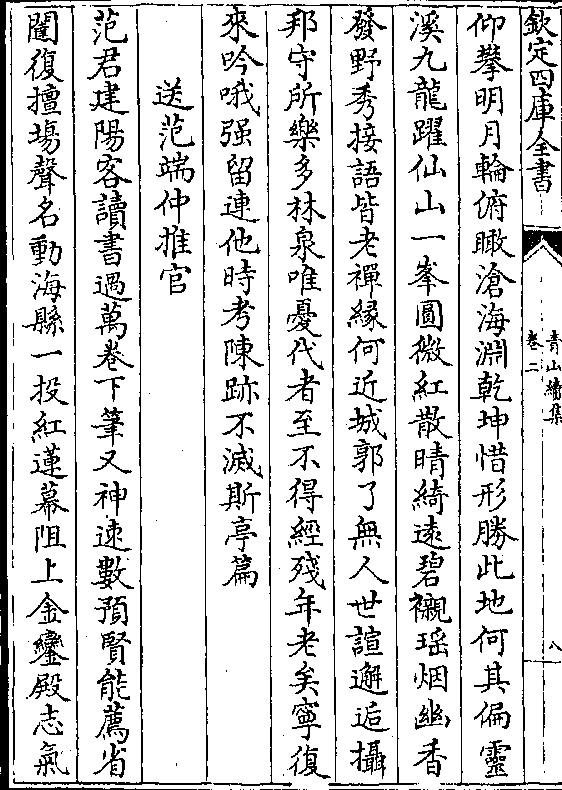 欽定四庫全書
青山續集
卷二
八
仰攀明月輪俯瞰滄海淵乾坤惜形勝此地何其偏靈
溪九龍躍仙山一峯圓微紅散晴綺遠碧襯瑶烟幽香
發野秀接語皆老禪緣何近城郭了無人世諠邂逅攝
邦守所樂多林泉唯憂代者至不得經殘年老矣寧復
來吟哦强留連他時考陳跡不滅斯亭篇
送范端仲推官
范君建陽客讀書過萬卷下筆又神速數預賢能薦省
闈復擅塲聲名動海縣一投紅蓮幕阻上金鑾殿志氣